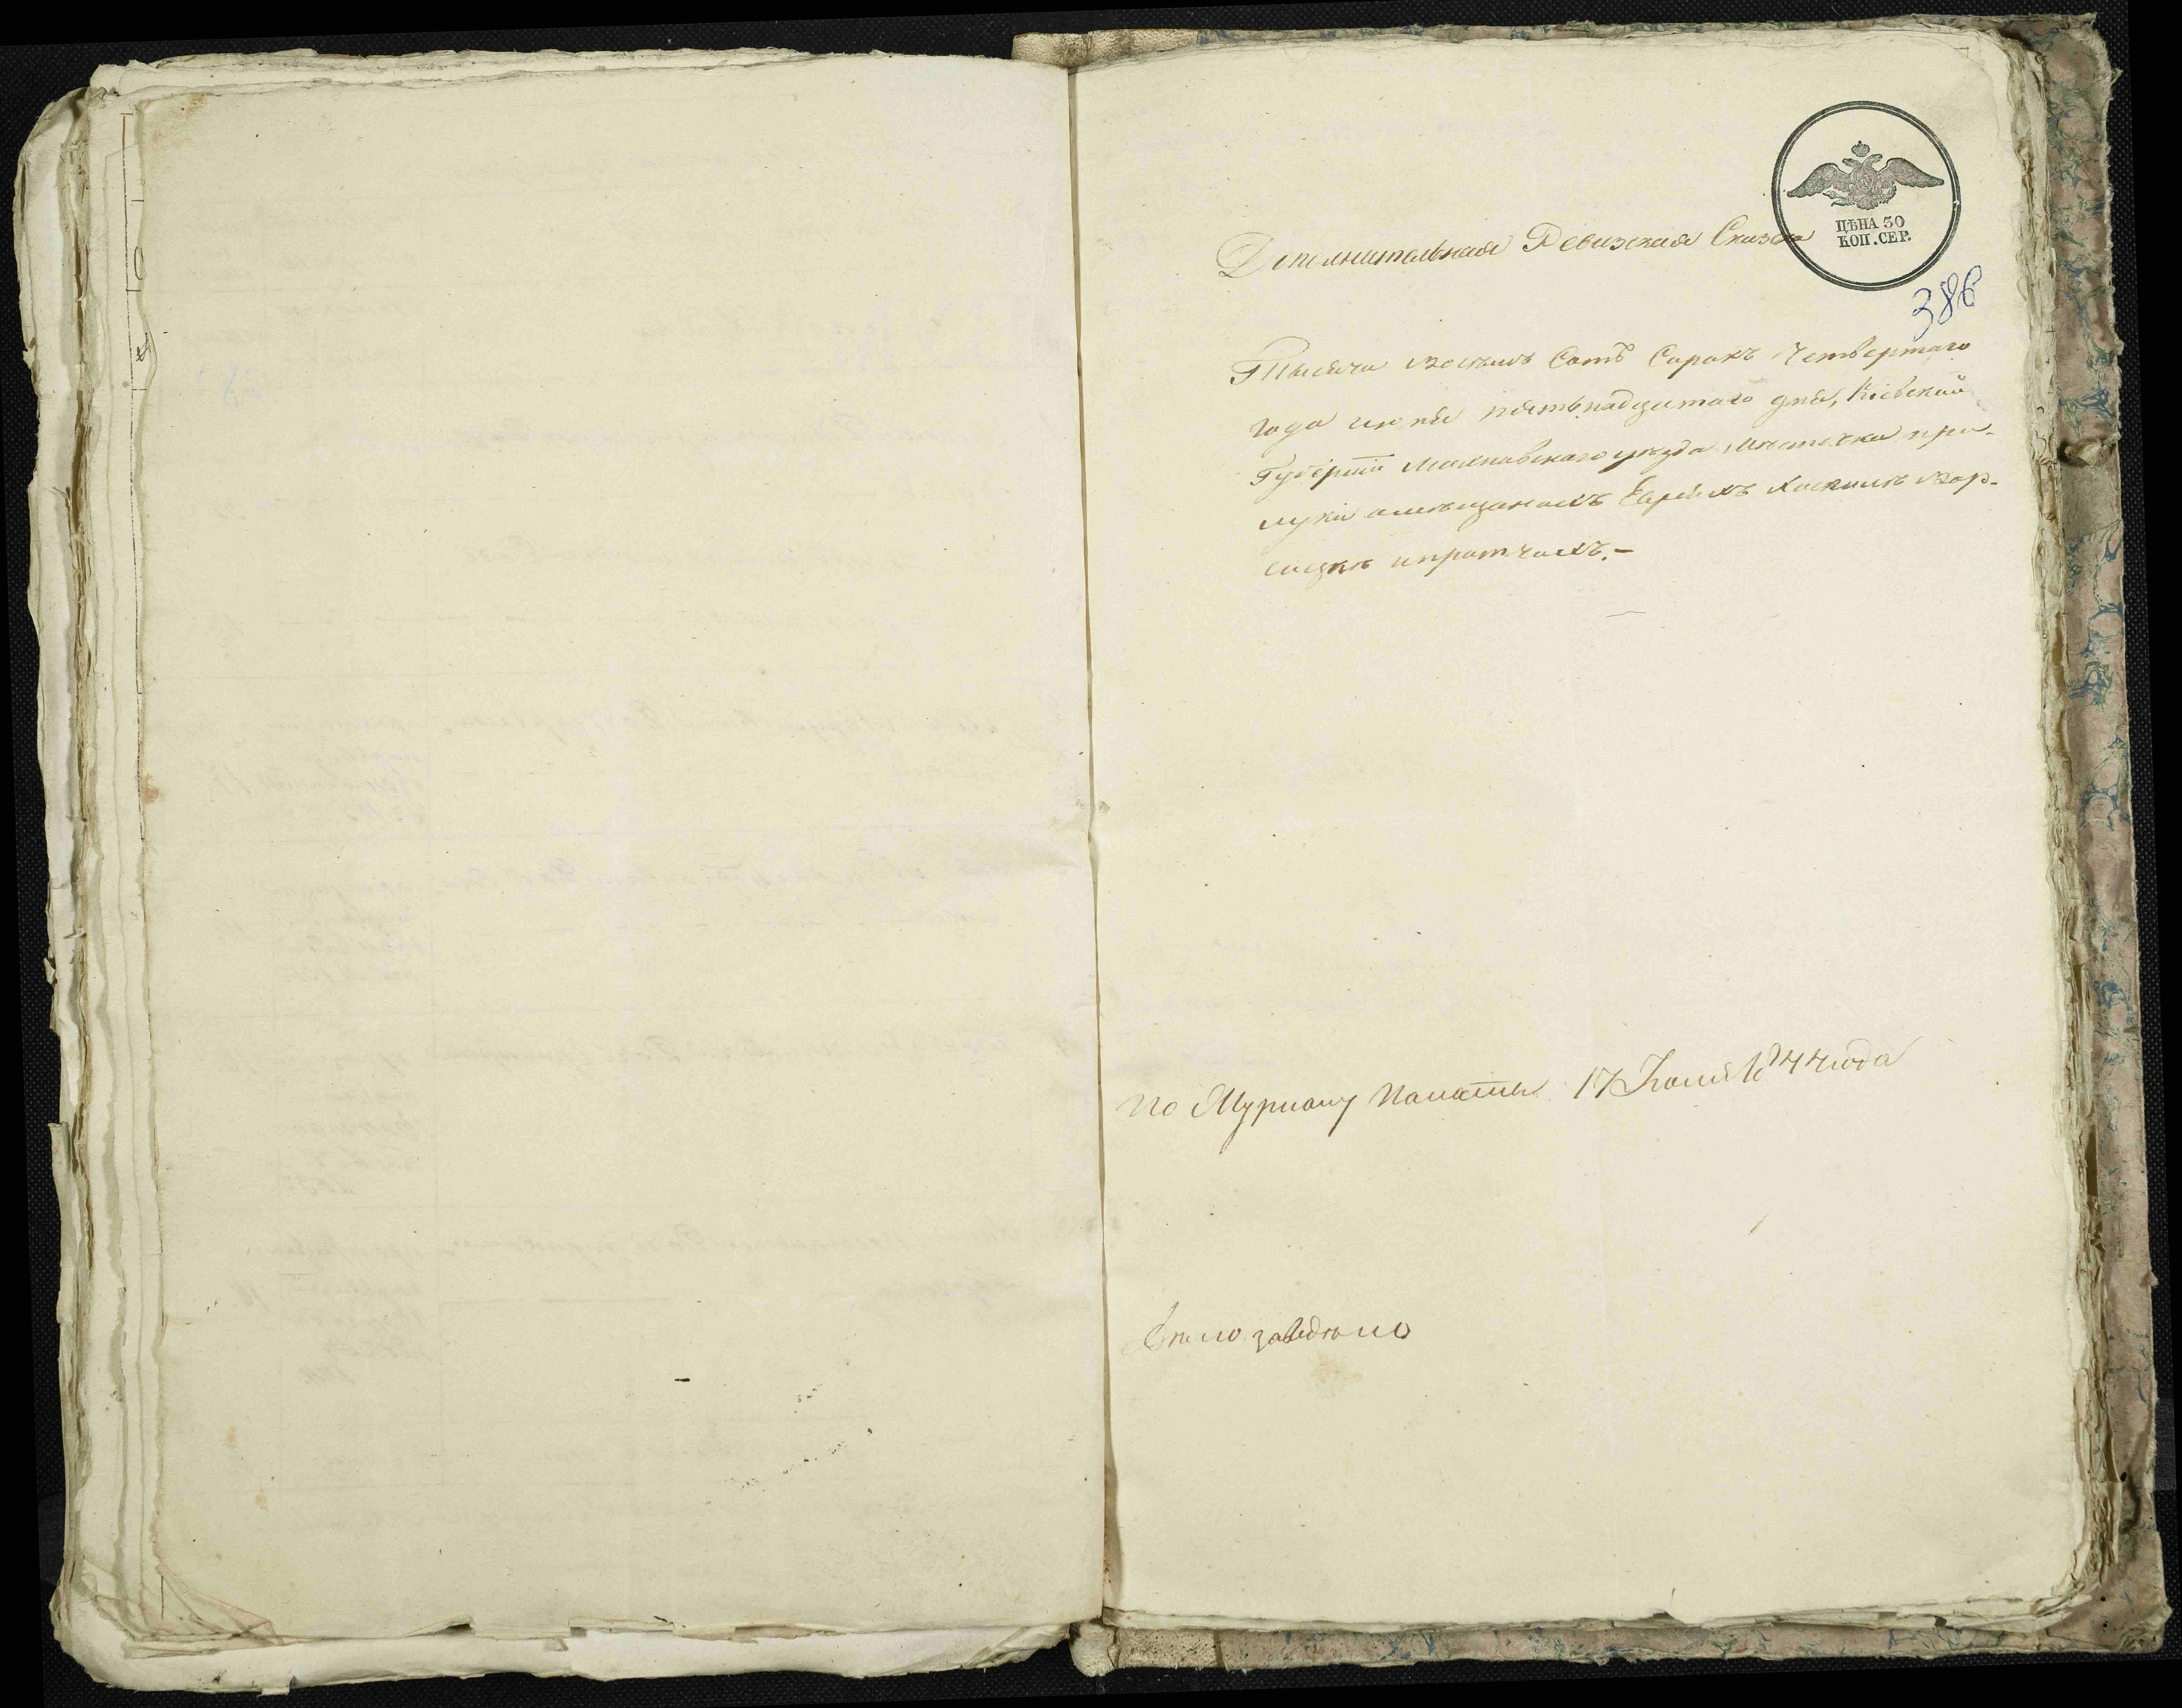 ЦѢНА 30
КОП. СЕР.
Дополнительная Ревизская Сказка
386
Тысяча восемь Сотъ Сорокъ Четвертаго
года июня пятьнадцатого дня, Кіевской
Губерніи Махновскаго уезда местечка при-
луки омещанахъ Евреяхъ
ипротчихъ.-
По Журналу Палаты 17 Июля 1844 года